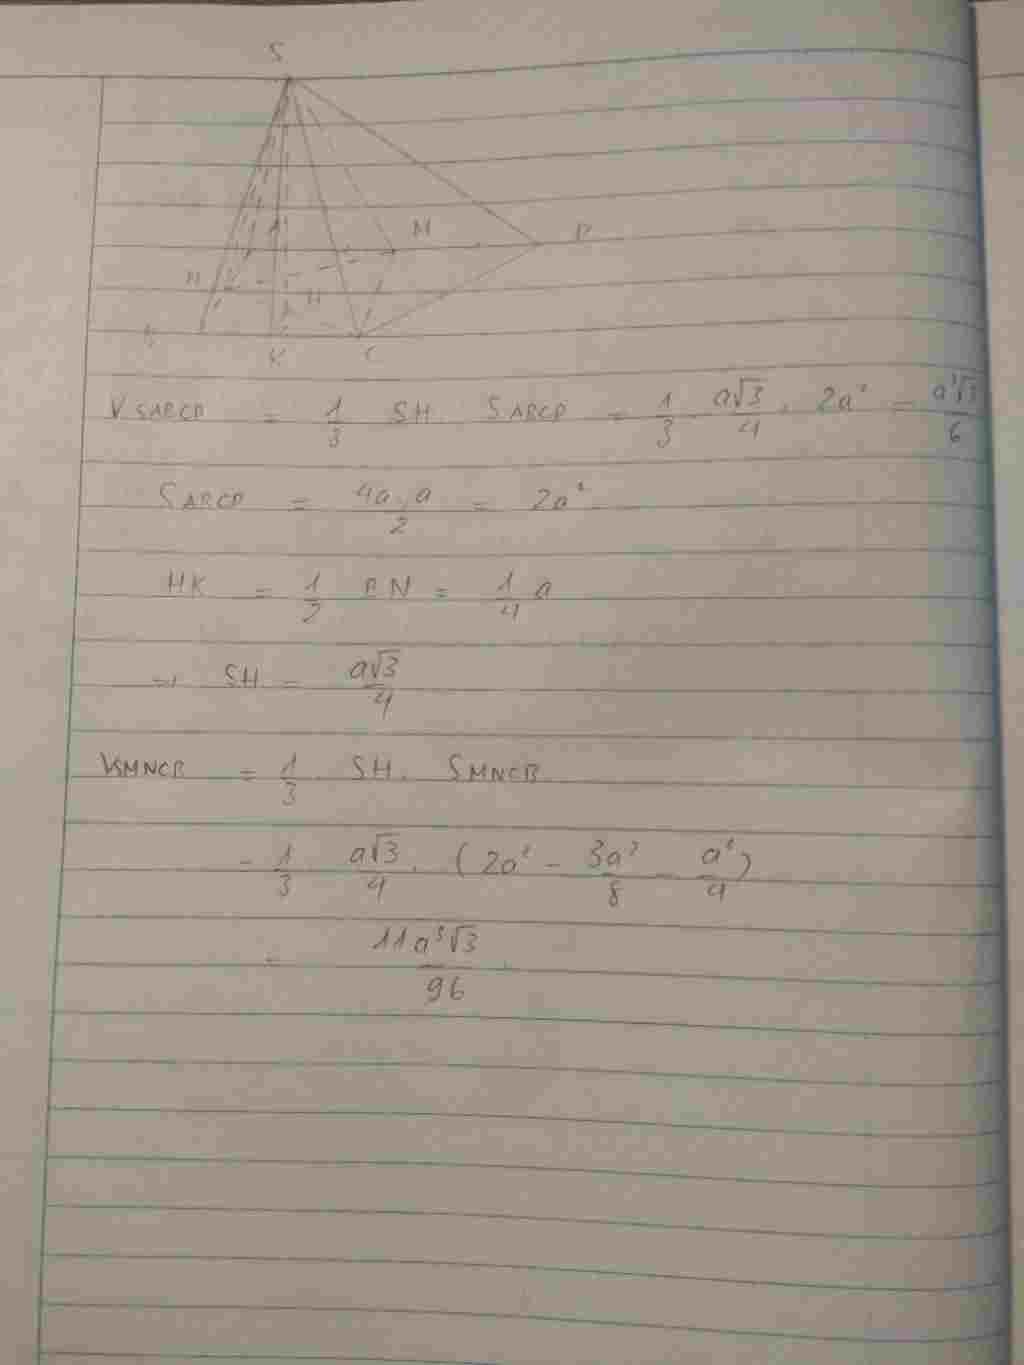 S
M
D
N
H
K
C
V SABCD = 1/3 SH. SABCD = 1/3 . a√3/4 . 2a² = a³√3/6
SABCD = 4a.a/2 = 2a²
HK = 1/2 BN = 1/4 a
=> SH = a√3/4
VSMNCB = 1/3 . SH. SMNCB
= 1/3 a√3/4 . (2a² - 3a²/8 - a²/4)
= 11a³√3/96